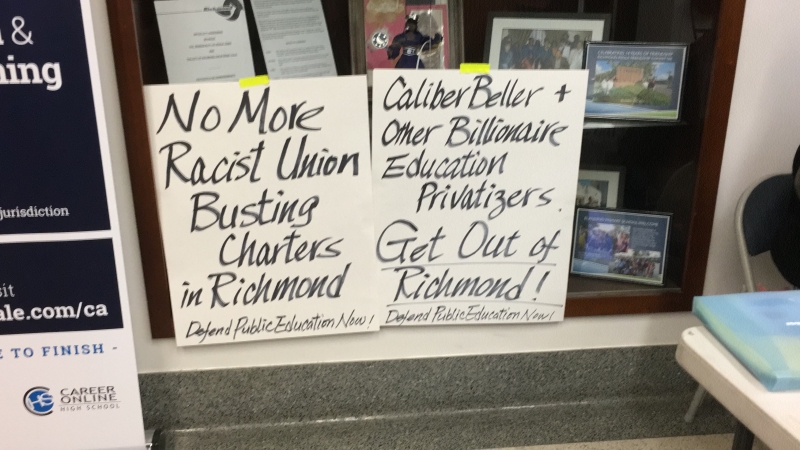 &
ning
jurisdiction
sit
ale.com/ca
E TO FINISH -
CAREER
ONLINE
HIGH SCHOOL
No More
Racist Union
Busting
Charters
in Richmond
Defend Public Education Now!
Caliber Beller +
Other Billionaire
Education
Privatizers.
Get Out of
Richmond!
Defend Public Education Now!